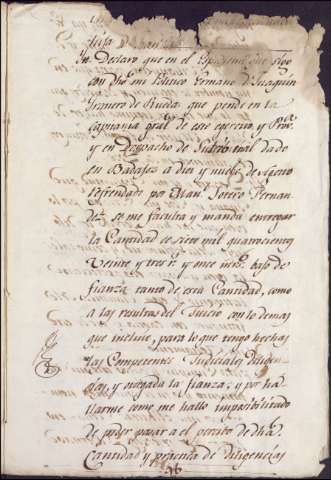 Yn Declaro que en el Expediente que sigo
con Dho mi Politico Ermano Dn Joaquin
Romero de Rueda que pende en la
Capitania gral de este egercito y Prova
y en Despacho de su tribunal dado
en Badajoz a diez y nuebe de Agosto
Refrendado por Manl Sotero Fernan
dez se me faculta y manda entregar
la Cantidad de siete mil quatrocientos
Veinte y tres rs y mrs bajo de
fianza tanto de esta Cantidad, como
a las resultas del Juicio con lo demas
que incluie, para lo que tengo hechas
las Competentes Judiciales diligen
cias, y otorgada la fianza; y por ha
llarme como me hallo imposibilitado
de poder pasar a el percibo de dha
Cantidad y practica de diligencias